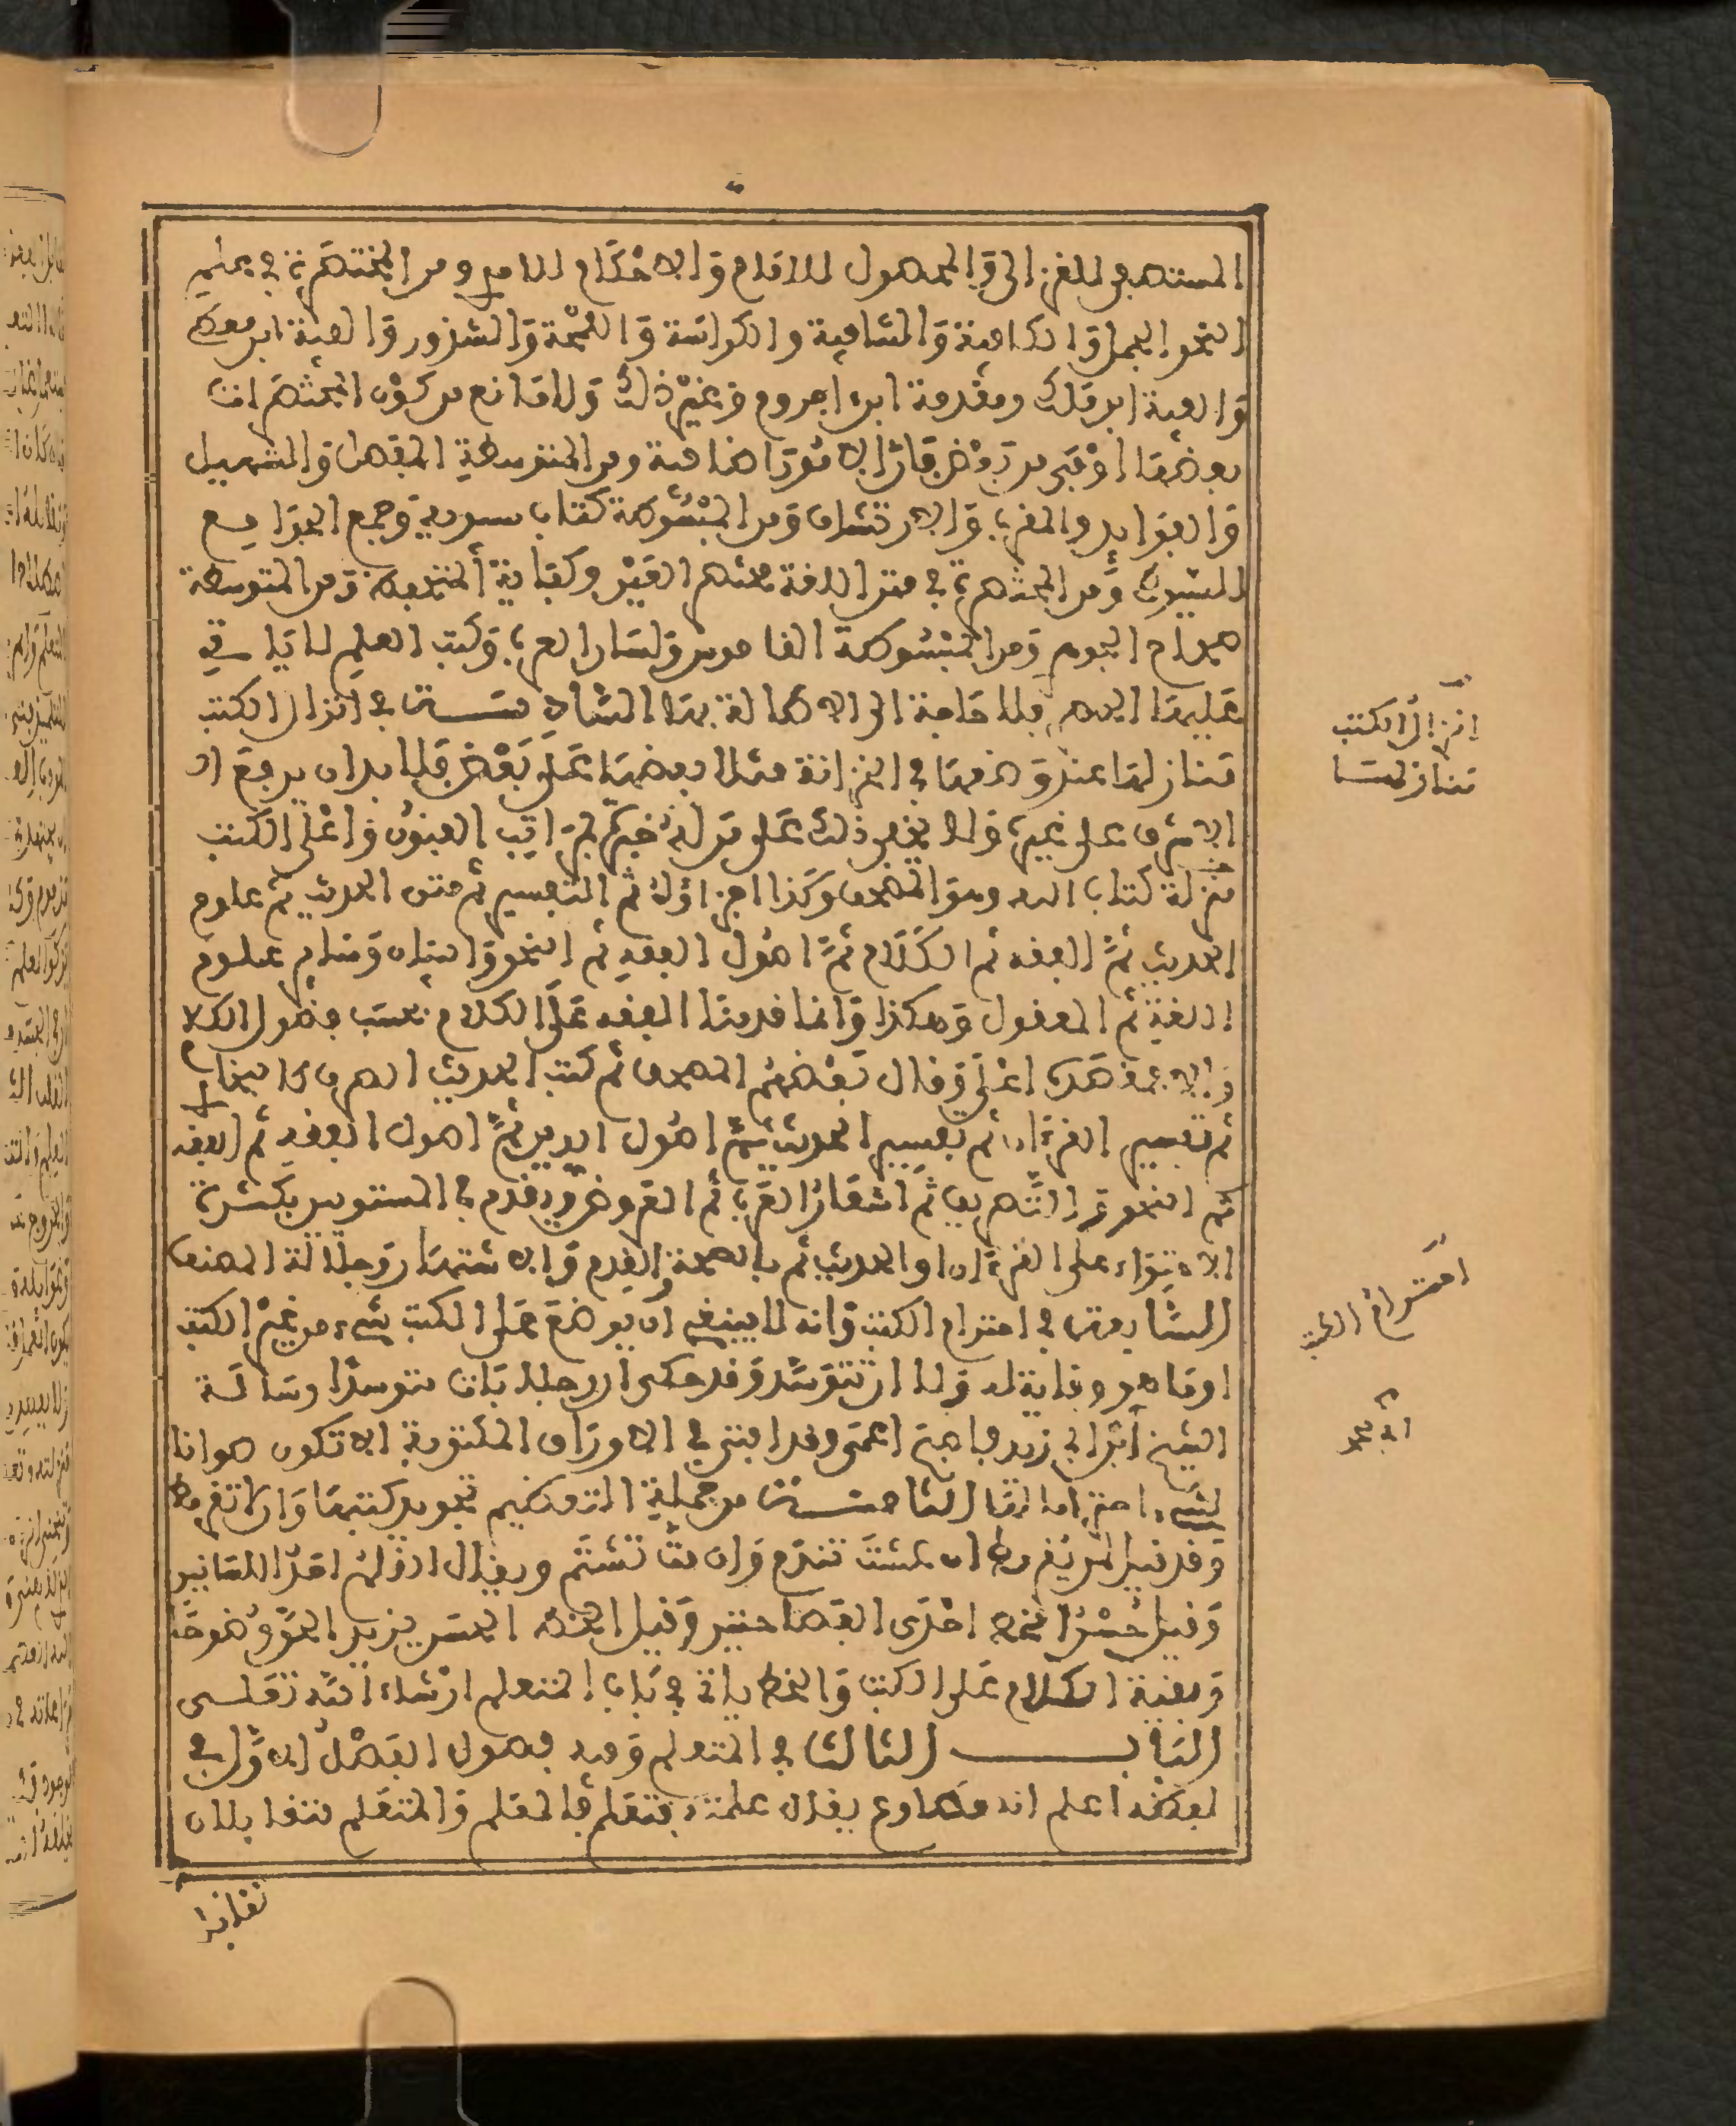 المستصفى للغزالي والمحصول للامام والاحكام للامدي ومن المختصرة في علم
النحو الجمل والكافية والشافية والكراسة واللمحة والشذور والفية ابن معط
والفية ابن مالك ومقدمة ابن اجروم وغير ذلك ولا مانع من كون المختصرات
بعضها اوفى من بعض فان الامور اضافية ومن المتوسطة المفصل والتسهيل
والفوايد والمغرب والارتشاف ومن المبسوطة كتاب سيبويه وجمع الجوامع
للسيوطي ومن المختصرة في متن اللغة مختصر العين وكفاية المتحفظ ومن المتوسطة
صحاح الجوهري ومن المبسوطة القاموس ولسان العرب وكتب العلم لا ياتي
عليها الحصر فلا حاجة الى الاطالة بهذا السادسة في انزال الكتب
منازلها عند وضعها في الخزانة مثلا بعضها على بعض فلا بد ان يرفع
الاشرف على غيره ولا يخفى ذلك على من له خبرة بمراتب الفنون واعلى الكتب
منزلة كتاب الله وهو المصحف وكذا اجزاؤه ثم التفسير ثم متن الحديث ثم علوم
الحديث ثم الفقه ثم الكلام ثم اصول الفقه ثم النحو والبيان وساير علوم
اللغة ثم المعقول وهكذا وانما قدمنا الفقه على الكلام بحسب فضول الكلا
والا فمقصده اعلى وقال بعضهم المصحف ثم كتب الحديث الصرف كالبخاري
ثم تفسير القرءان ثم تفسير الحديث ثم اصول الدين ثم اصول الفقه ثم الفقه
ثم النحو والتصريف ثم اشعار العرب ثم العروض ويقدم في المستويين بكثرة
الاحتواء على القرءان او الحديث ثم بالصحة والقدم والاشتهار وجلالة المصنف
السابعة في احترام الكتب وانه لا ينبغي ان يوضع على الكتب شيء من غير الكتب
او ما هو وقاية له ولا ان تتوسد وقد حكي ان رجلا بات متوسدا رسالة
الشيخ ابن ابي زيد فاصبح اعمى وقد افتي في الاوراق المكتوبة الا تكون صوانا
لشيء احتراما لها الثامنة من جملة التعظيم تجويد كتبها وان لا تقرمط
وقد قيل لمن يقرمط ان عشت تندم وان مت تشتم ويقال القلم احد اللسانين
وقيل حسن الخط احدى الفصاحتين وقيل الخط الحسن يزيد الحق وضوحا
وبقية الكلام على الكتب والخط ياتي في باب المتعلم ان شاء الله تعلى
الباب الثالث في المتعلم وفيه فصول الفصل الاول في
لفظه اعلم انه مطاوع يقال علمته فتعلم فالمعلم والمتعلم متقابلان
تقابل
انزال الكتب
منازلها
احترام الكتب